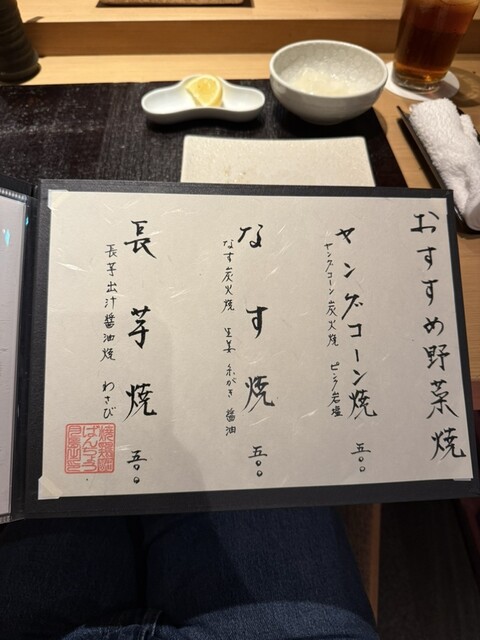 おすすめ野菜焼
ヤングコーン焼 五〇〇
ヤングコーン炭火焼 ピンク岩塩
なす焼 五〇〇
なす炭火焼 生姜 糸がき 醤油
長芋焼 五〇〇
長芋出汁醤油焼 わさび